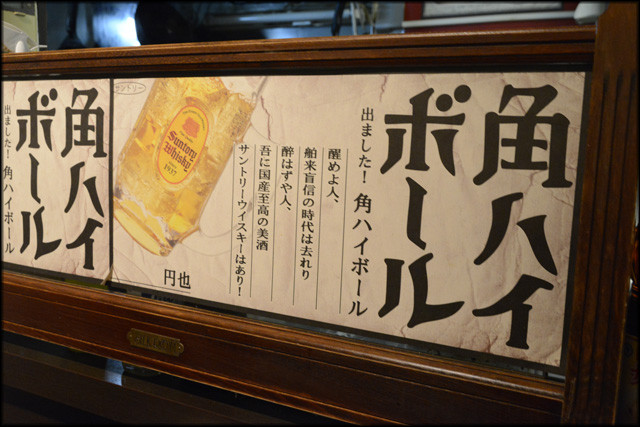 角ハイ
ボール
出ました！角ハイボール
醒めよ人、
舶来盲信の時代は去れり
酔はずや人、
吾に国産至高の美酒
サントリーウイスキーはあり！
円也
サントリー
Suntory
Whisky
1937
角ハイ
ボール
出ました！角ハイボール